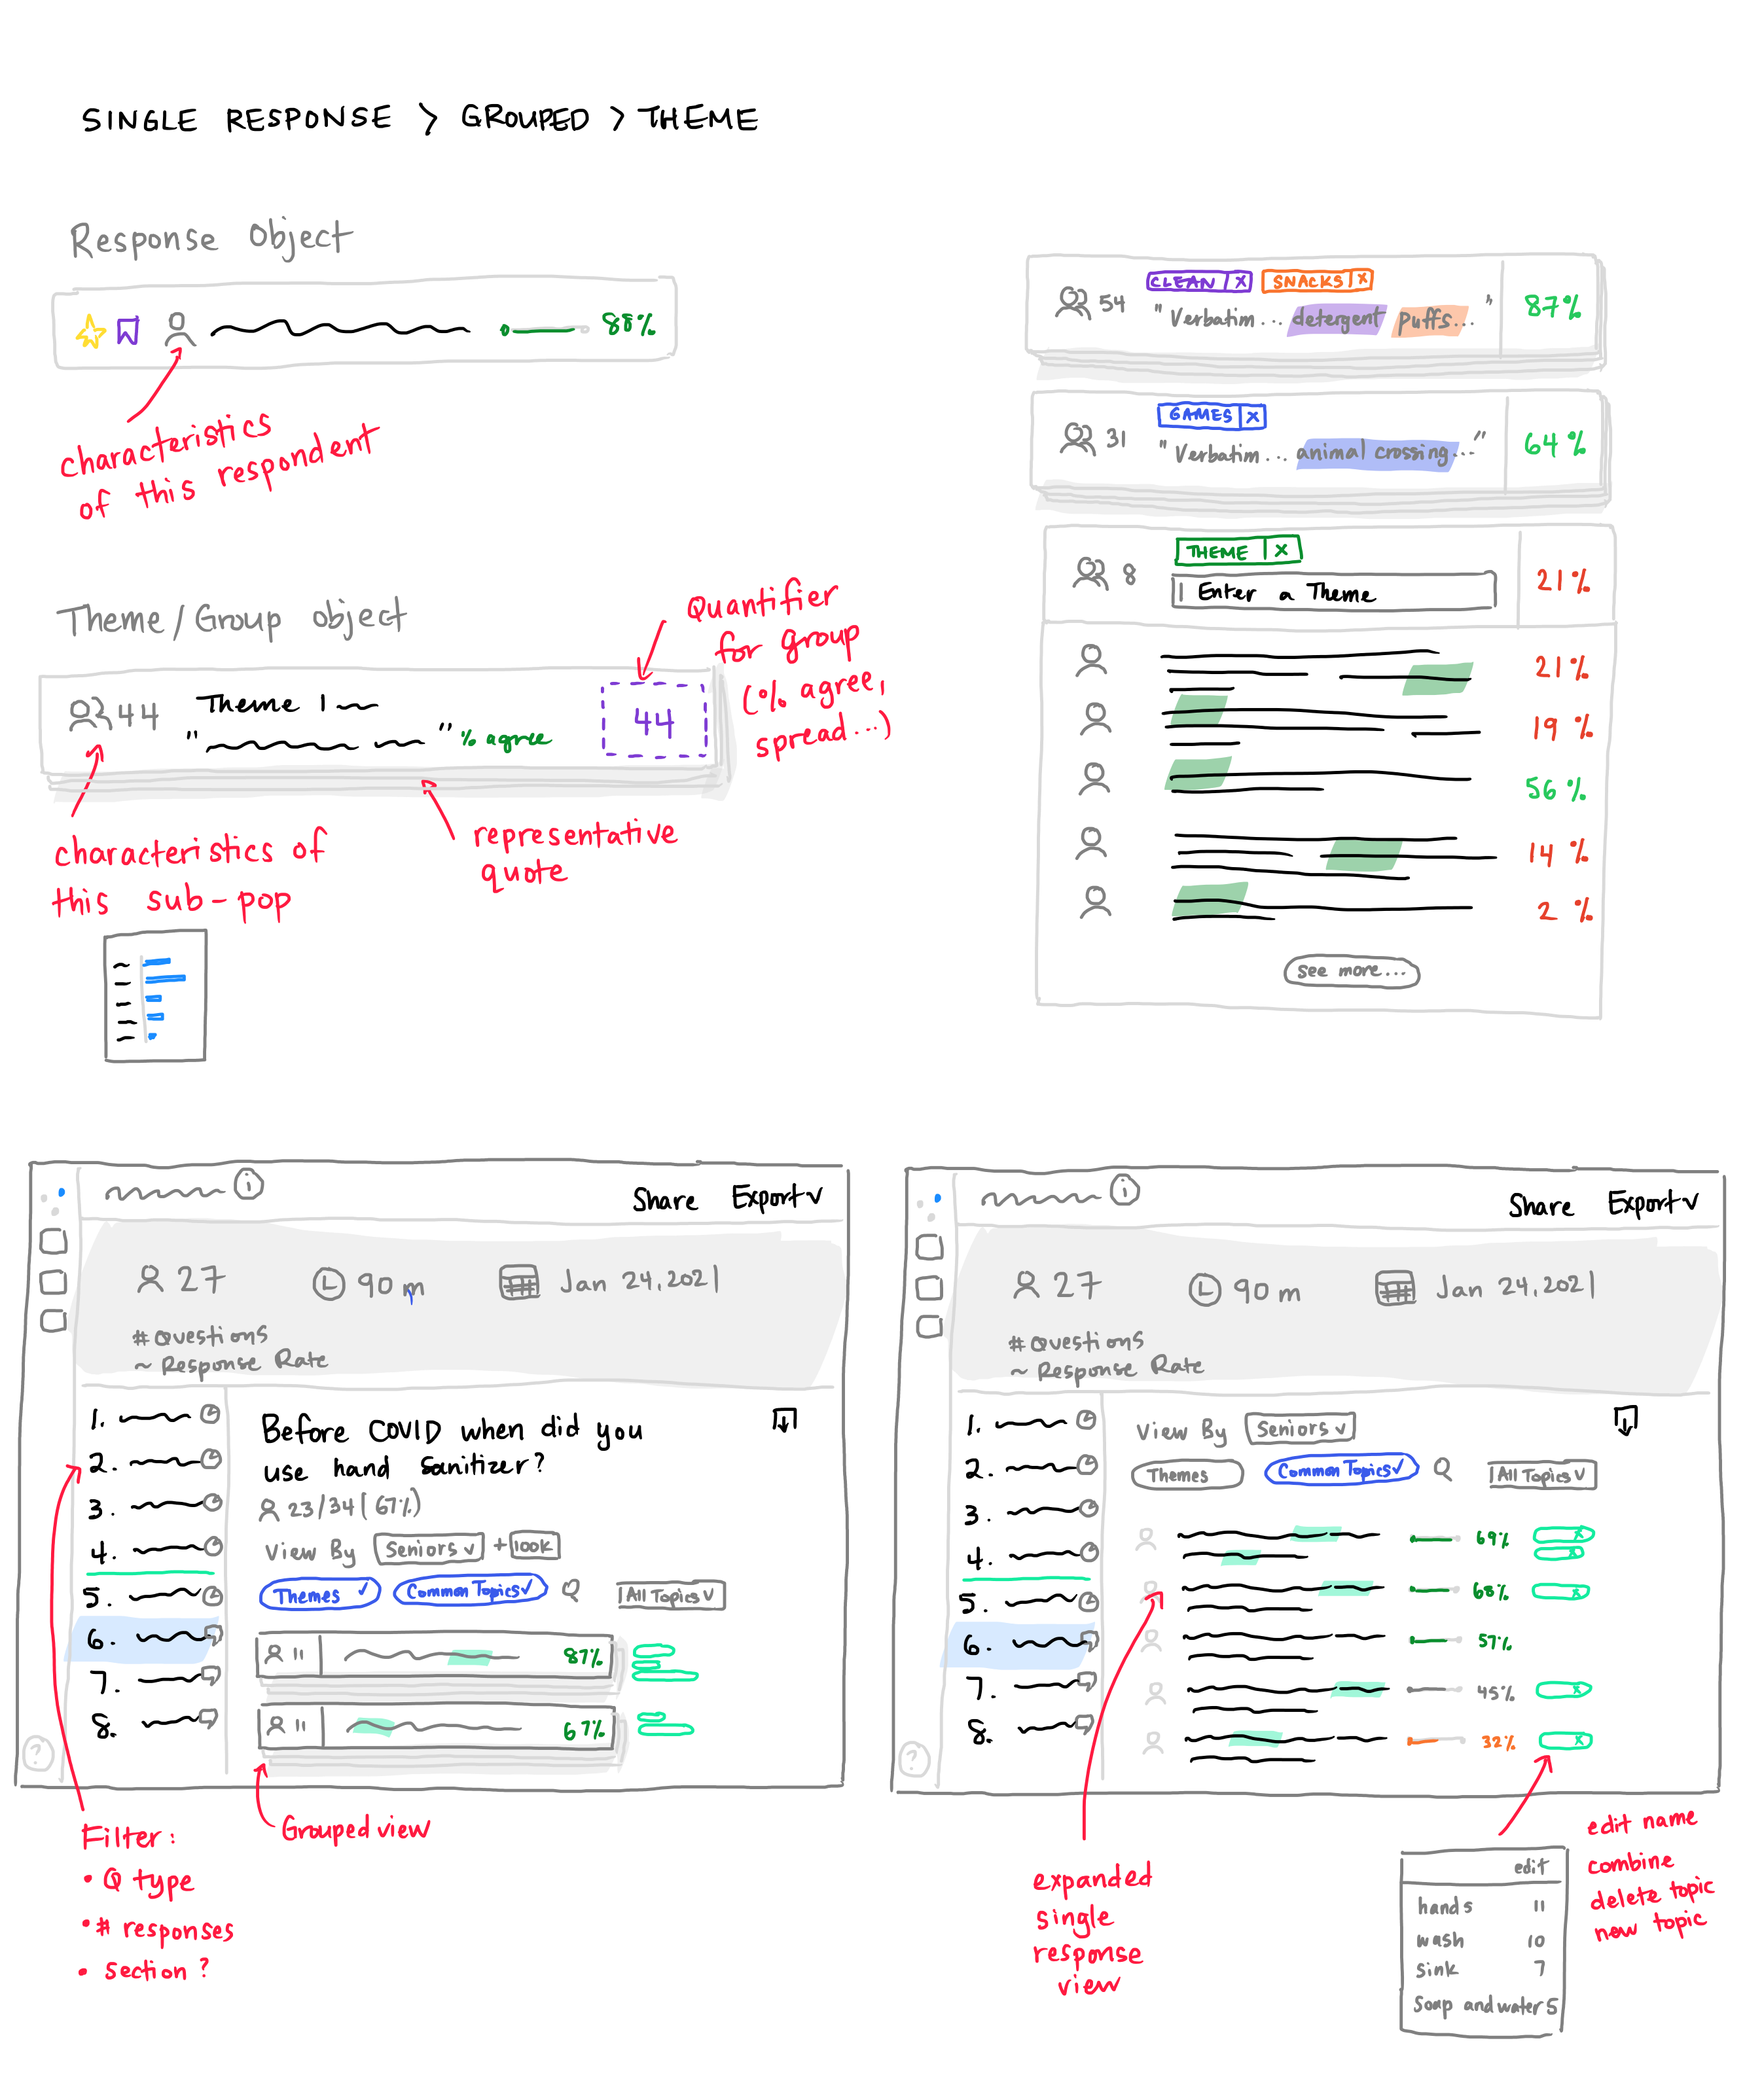 SINGLE RESPONSE > GROUPED > THEME
Response Object
88%
characteristics
of this respondent
Theme/Group object
44
Theme 1
" " % agree
44
Quantifier
for group
(% agree,
spread...)
characteristics of
this sub-pop
representative
quote
54
CLEAN X SNACKS X
"Verbatim... detergent puffs... "
87%
31
GAMES X
"Verbatim... animal crossing..."
64%
8
THEME X
Enter a Theme
21%
21%
19%
56%
14%
2%
see more...
i
Share Export
27 90 m Jan 24, 2021
# Questions
~ Response Rate
1.
2.
3.
4.
5.
6.
7.
8.
?
Before COVID when did you
use hand sanitizer?
23/34 (67%)
View By Seniors + 100K
Themes Common Topics All Topics
11 87%
11 67%
Filter:
• Q type
• # responses
• section?
Grouped view
i
Share Export
27 90 m Jan 24, 2021
# Questions
~ Response Rate
1.
2.
3.
4.
5.
6.
7.
8.
?
View By Seniors
Themes Common Topics All Topics
69% x
x
68% x
57%
45% x
32% x
expanded
single
response
view
edit
hands 11
wash 10
sink 7
Soap and water 5
edit name
combine
delete topic
new topic